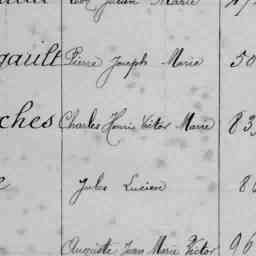 Julien Marie
gault Pierre Joseph Marie 50
ches Charles Henri Victor Marie 83
e Jules Lucien 86
Auguste Jean Marie Victor 96